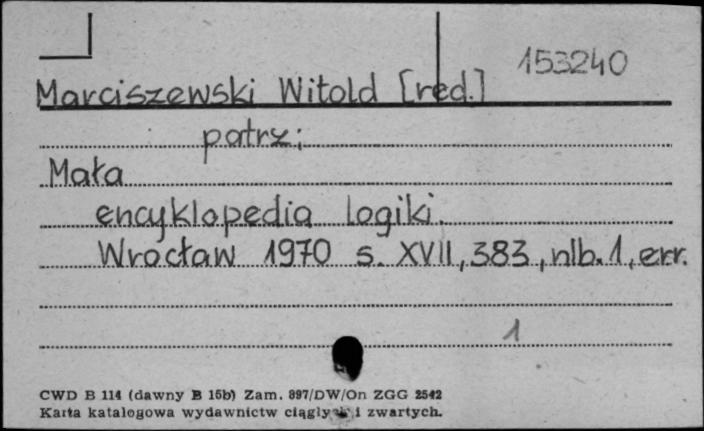 153240
Marciszewski Witold [red.]
patrz;
Mała
encyklopedia logiki.
Wrocław 1970 s. XVII, 383, nlb. 1, err.
1
CWD B 114 (dawny B 15b) Zam. 897/DW/On ZGG 2542
Karta katalogowa wydawnictw ciągłych i zwartych.